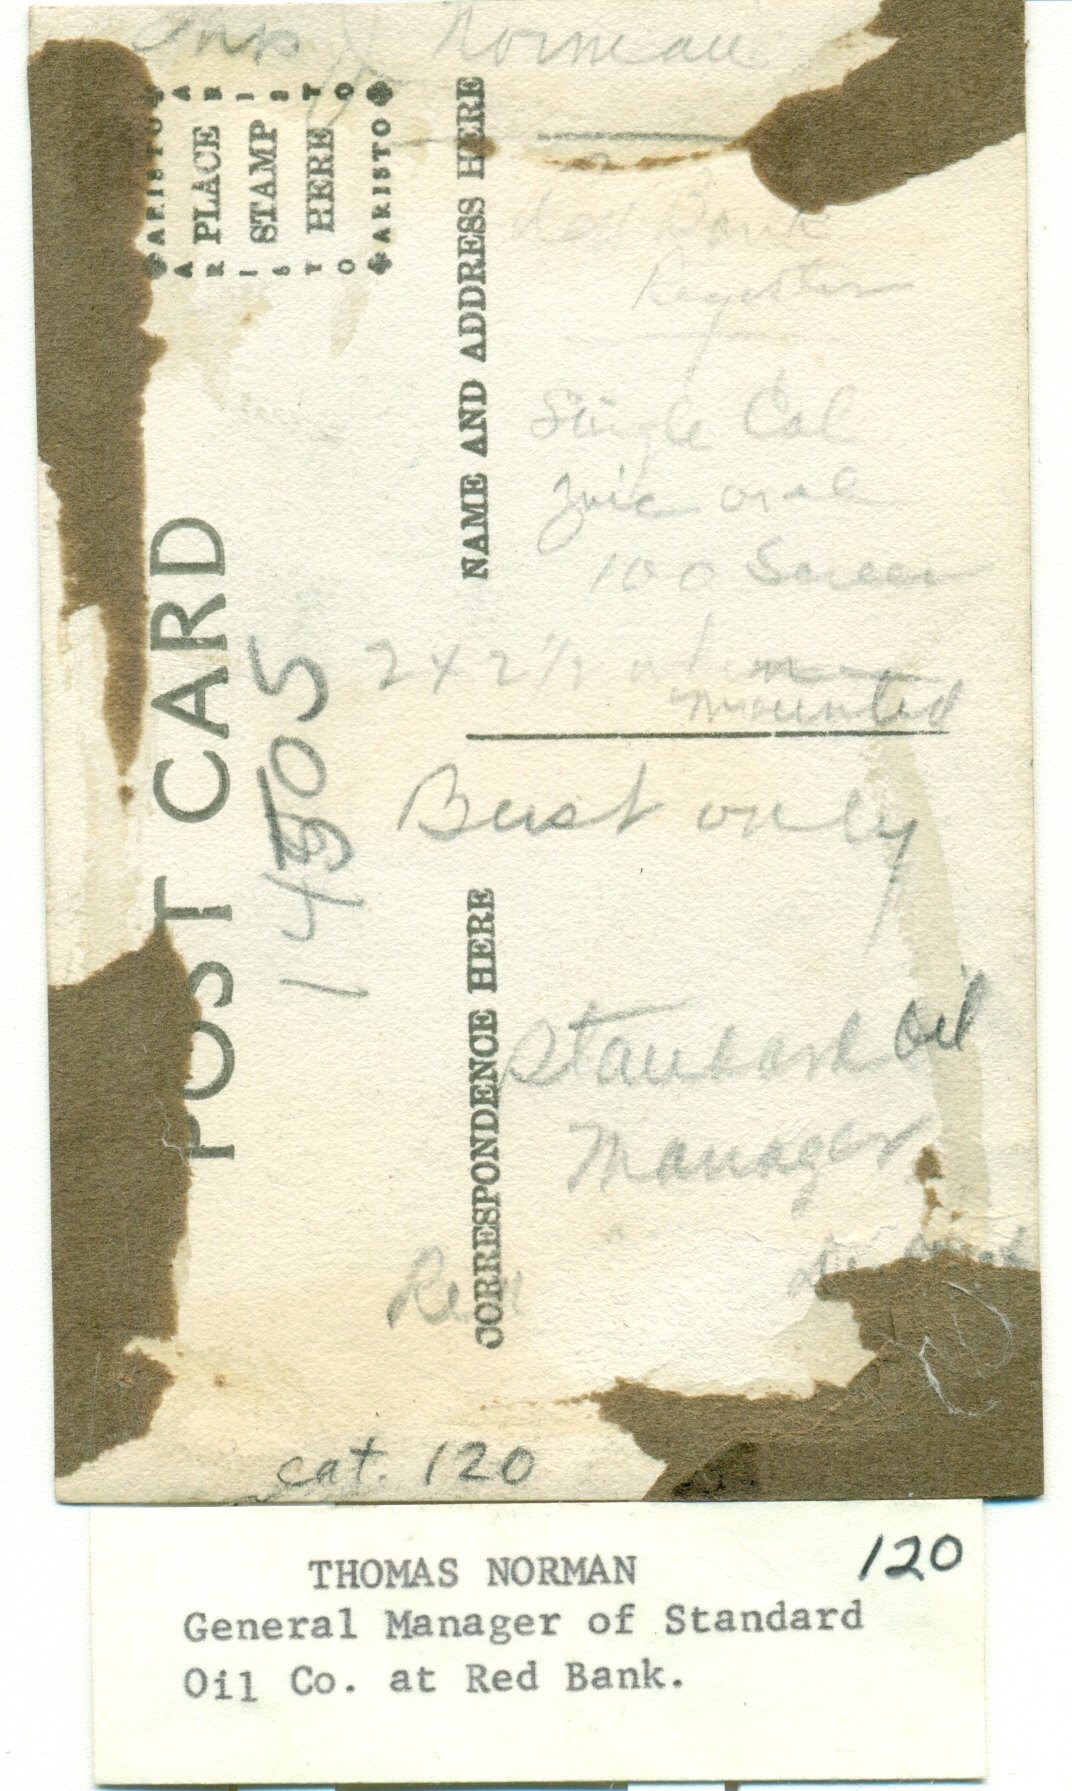 Thos Norman
ARISTO
PLACE
STAMP
HERE
ARISTO
ARISTO
ARISTO
NAME AND ADDRESS HERE
Red Bank
Register
Single Col
Zinc oval
100 Screen
2 x 2 1/2 when
mounted
POST CARD
14505
Bust only
CORRESPONDENCE HERE
Standard Oil
Manager
Red
cat. 120
120
THOMAS NORMAN
General Manager of Standard
Oil Co. at Red Bank.